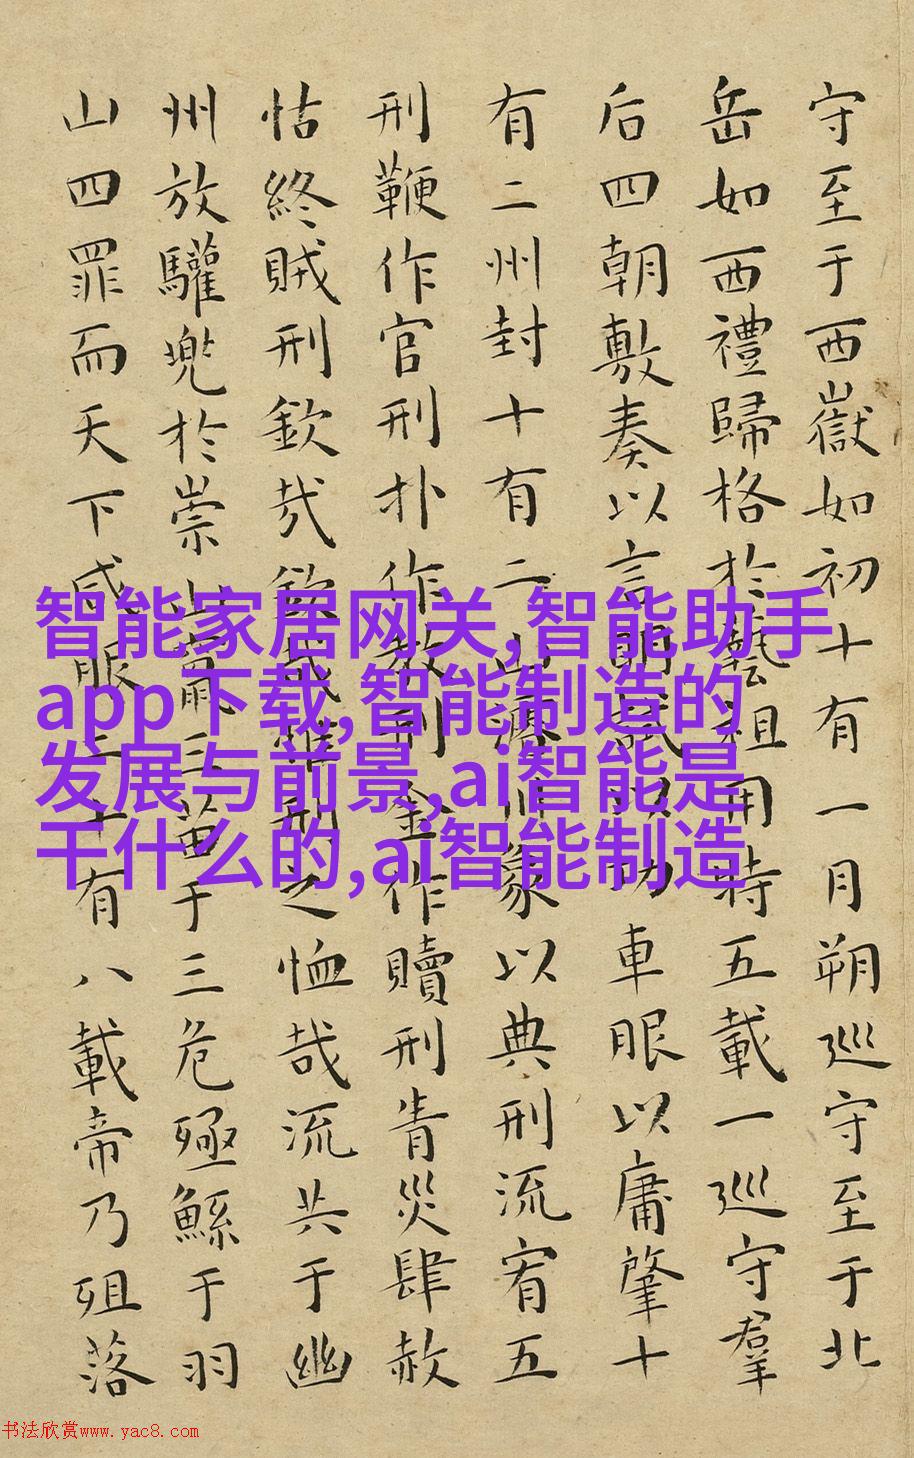 守至于西嶽如初十有一月朔巡守至于北
岳如西禮歸格於藝祖用特五載一巡守羣
后四朝敷奏以言明試以功車服以庸肇十
有二州封十有二山濬川象以典刑流宥五
刑鞭作官刑扑作教刑金作贖刑眚災肆赦
怙終賊刑欽哉欽哉惟刑之恤哉流共于幽
州放驩兜於崇山竄三苗于三危殛鯀于羽
山四罪而天下咸服二十有八載帝乃殂落
智能家居网关,智能助手
app下载,智能制造的
发展与前景,ai智能是
干什么的,ai智能制造
书法欣赏www.yac8.com